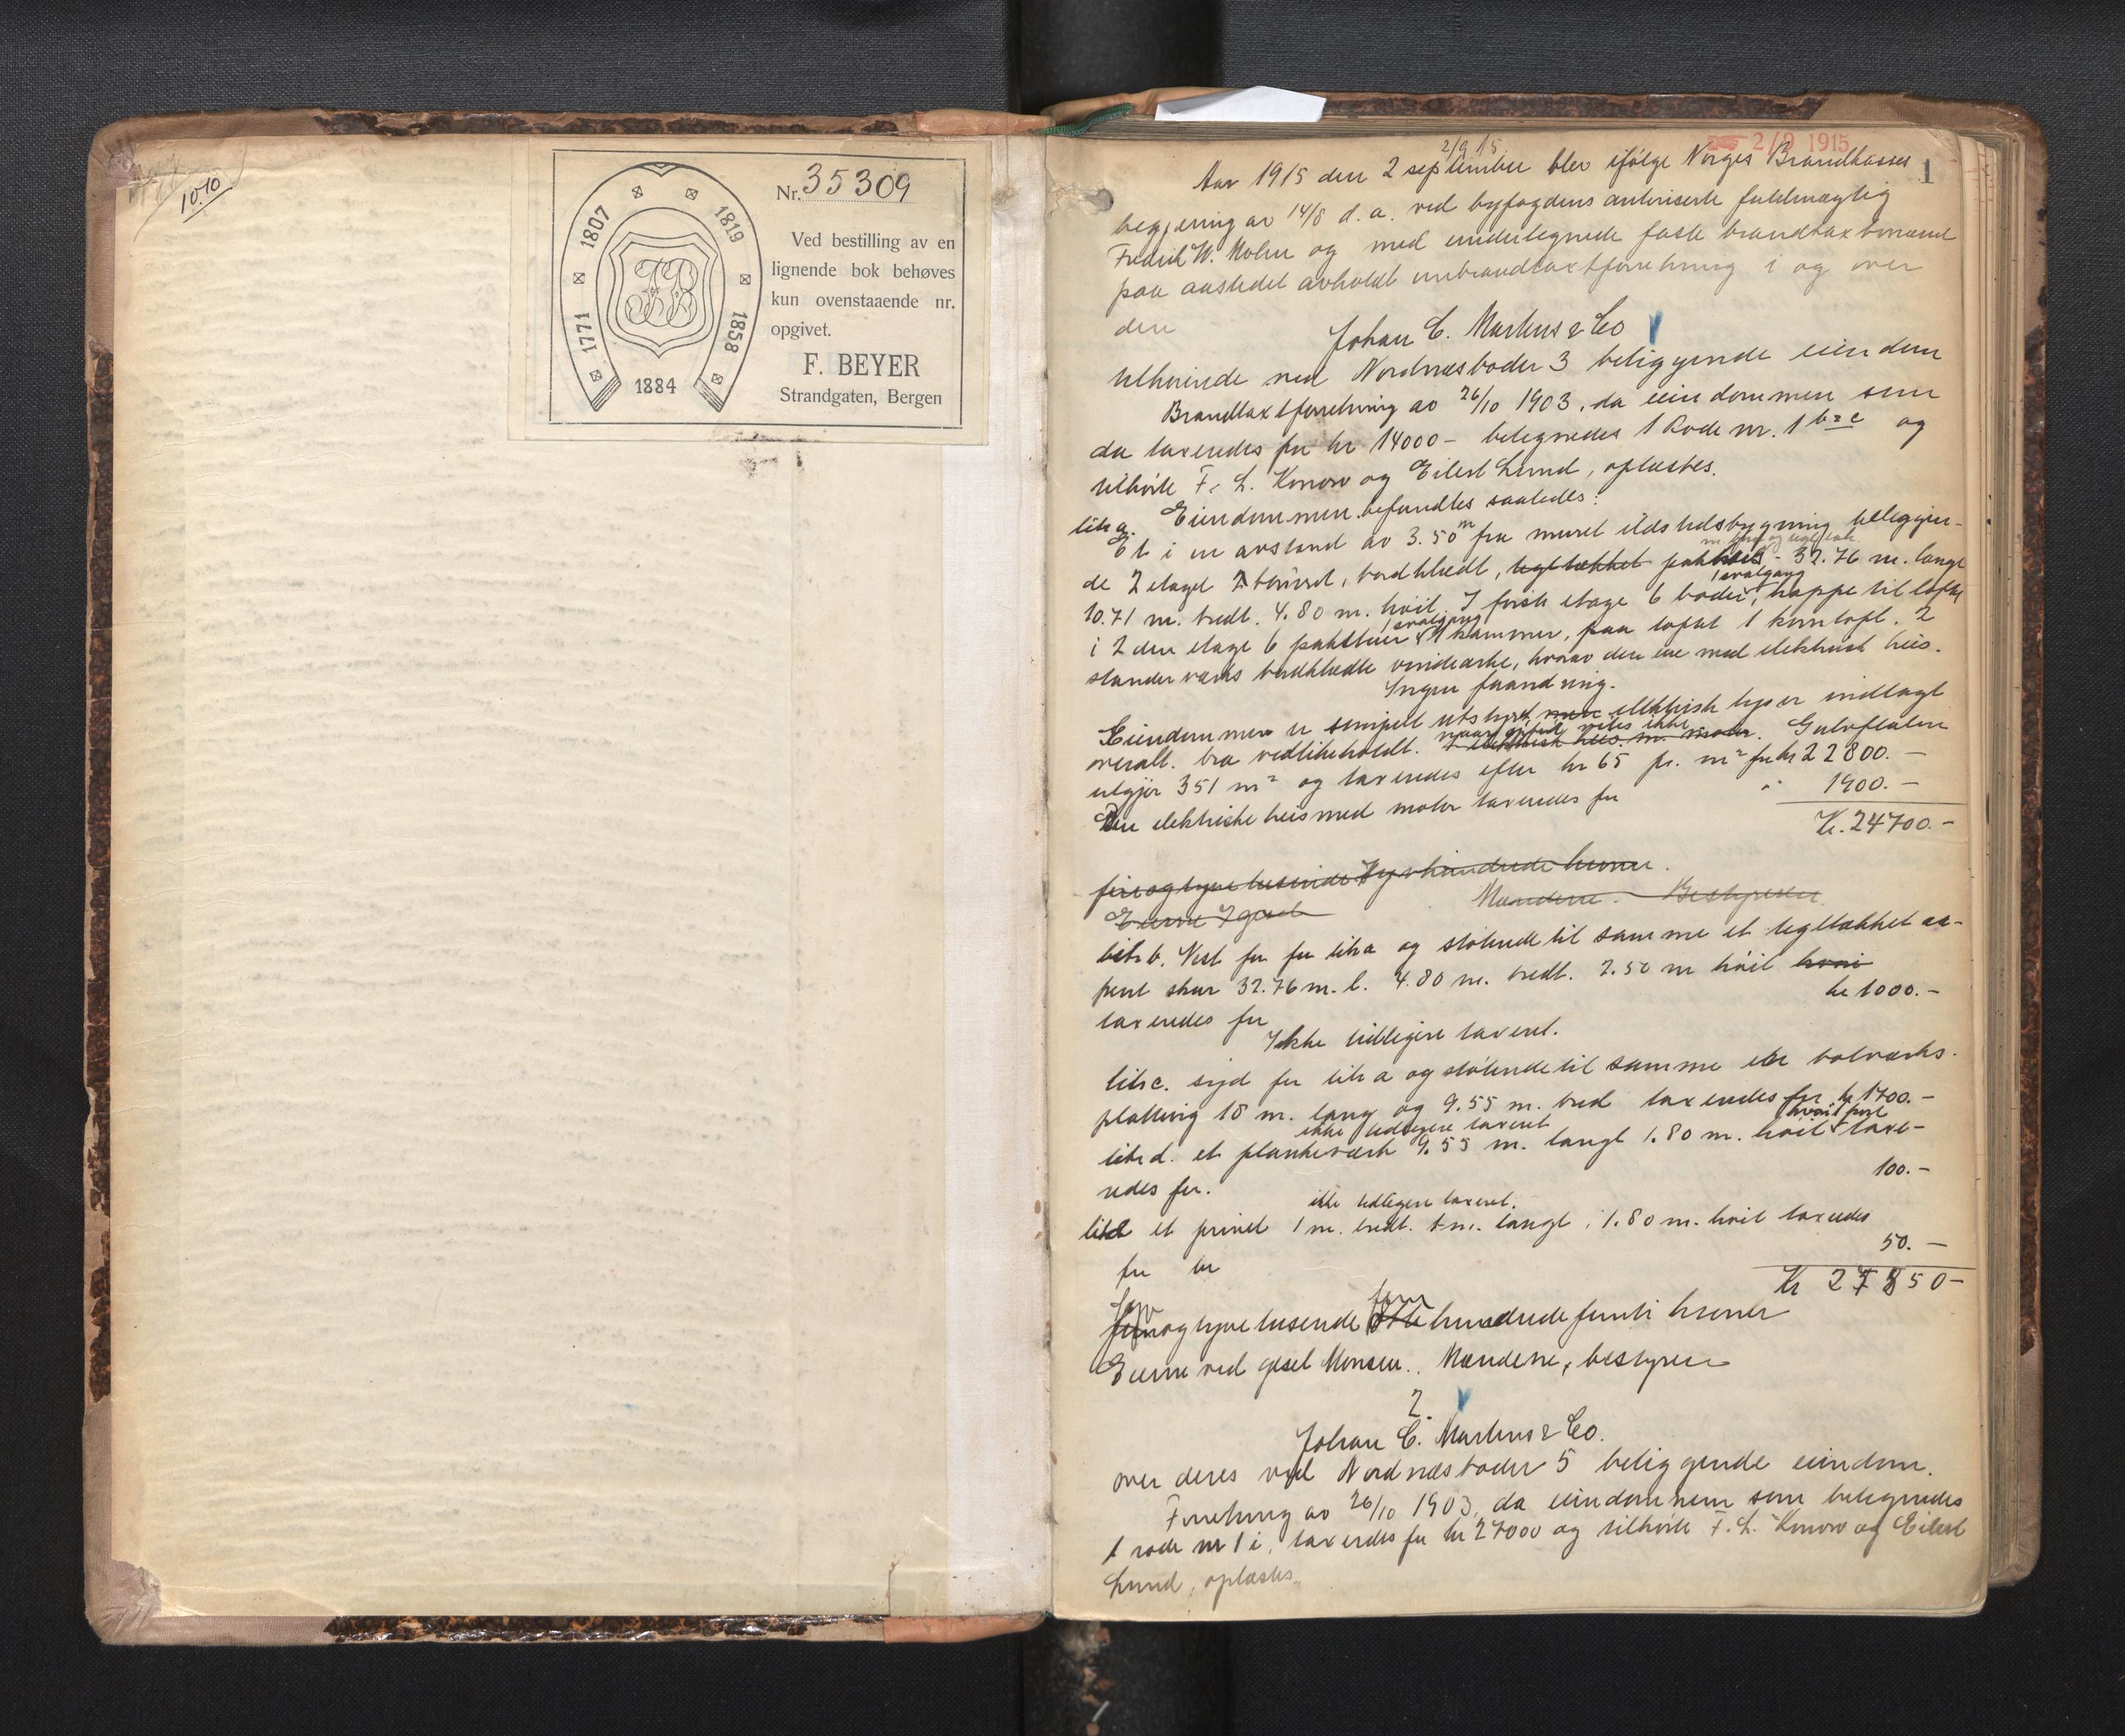 10.10
1771 1807 1819 1858
1884
Nr. 35309
Ved bestilling av en
lignende bok behøves
kun ovenstaaende nr.
opgivet.
F. BEYER
Strandgaten, Bergen
2/9 1915
2/9 15.
1
Aar 1915 den 2 september blev ifølge Norges Brandkasses
begjæring av 14/8 d. a. ved byfogdens autoriserte fuldmægtig
Fredrik W. Mohn og med undertegnede faste brandtaxtmænd
paa aastedet avholdt ombrandtaxtforretning i og over
den
Johan C. Martens & Co
tilhørende ved Nordnæsboder 3 beliggende eiendom
Brandtaxtforretning av 26/10 1903, da eiendommen som
da taxeredes for kr 14000- betegnedes 1 Rode nr. 1 b=c og
tilhørte F. L. Konow og Eilert Lund, oplæstes.
Eiendommen befandtes saaledes:
litr a. Et i en avstand av 3.50 m fra muret ildstedsbygning beliggen-
de 2 etages tømret, bordklædt, tegltækket pakhus - 32.76 m. langt
10.71 m. bredt. 4.80 m. höit. I første etage 6 boder, 1 svalgang, trappe til loftet
i 2den etage 6 pakstuer 1 svalgang & 1 kammer, paa loftet 1 kornloft. 2
standerværks bordklædte vindearke, hvorav den ene med elektrisk heis.
Ingen forandring.
Eiendommen er simpelt utstyrt men elektrisk lys er indlagt
overalt. bra vedlikeholdt. naar opført vites ikke. + elektrisk heis m. motor. Gulvflaten
utgjør 351 m² og taxeredes efter kr 65 pr. m² for kr 22800.-
Den elektriske heis med motor taxeredes for " 1900.-
Kr. 24700.-
fireogtyvetusindesyvhundrede kroner.
Mændene. Bestyreren.
Eierne Igesel
litr b. Vest for for litr a og støtende til samme et tegltækket aa-
pent skur 32.76 m. l. 4.80 m. bredt. 2.50 m höit
taxeredes for kr 1000.-
Ikke tidligere taxeret.
litr c. syd for litr a og støtende til samme en bolværks.
platting 18 m. lang og 9.55 m. bred taxeredes for kr 1700.-
ikke tidligere taxeret
litr d. et plankeværk 9.55 m. langt 1.80 m. höit hvori port taxe-
redes for. 100.-
ikke tidligere taxeret.
et privet 1 m. bredt. 1 m. langt 1.80 m. höit taxeredes
for kr 50.-
Kr 27550-
syvogtyvetusende fem hundrede femti kroner
Eierne ved gesel Monsen. Mændene, bestyreren
2.
Johan C. Martens & Co.
over deres ved Nordnæsboder 5 beliggende eiendom.
Forretning av 26/10 1903, da eiendommen som betegnedes
1 rode nr 1 i, taxeredes for kr 27000 og tilhörte F. L. Konow og Eilert
Lund, oplæstes.